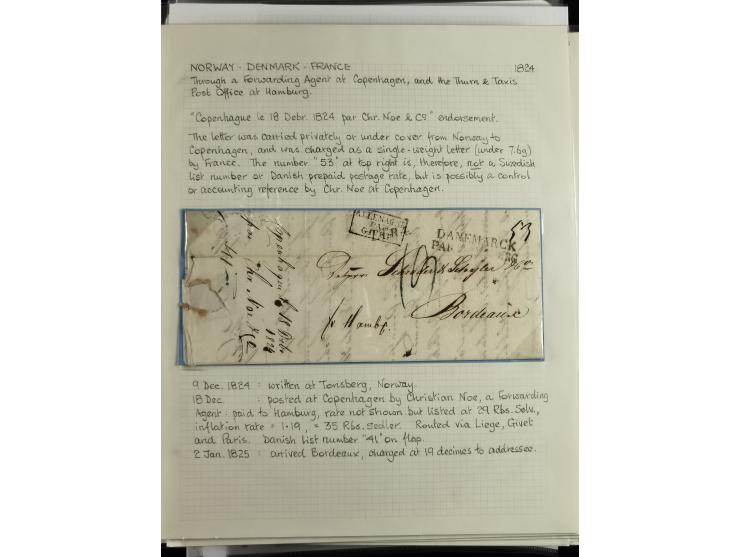 NORWAY - DENMARK - FRANCE 1824
Through a Forwarding Agent at Copenhagen, and the Thurn & Taxis
Post Office at Hamburg.
"Copenhague le 18 Debr. 1824 par Chr. Noe & Co" endorsement.
The letter was carried privately or under cover from Norway to
Copenhagen, and was charged as a single-weight letter (under 7.6g)
by France. The number "53" at top right is, therefore, not a Swedish
list number or Danish prepaid postage rate, but is possibly a control
or accounting reference by Chr. Noe at Copenhagen.
ALLEMAGNE
PAR
GIVET
53
DANEMARCK
PAR
Schröder & Schyler
Bordeaux
p Hambg.
Copenhague le 18 Debr
1824
par Chr Noe & Co
9 Dec. 1824 : written at Tonsberg, Norway.
18 Dec. : posted at Copenhagen by Christian Noe, a Forwarding
Agent : paid to Hamburg, rate not shown but listed at 29 Rbs. Solv.,
inflation rate = 1·19, = 35 Rbs. sedler. Routed via Liege, Givet
and Paris. Danish list number "41" on flap.
2 Jan. 1825 : arrived Bordeaux, charged at 19 decimes to addressee.